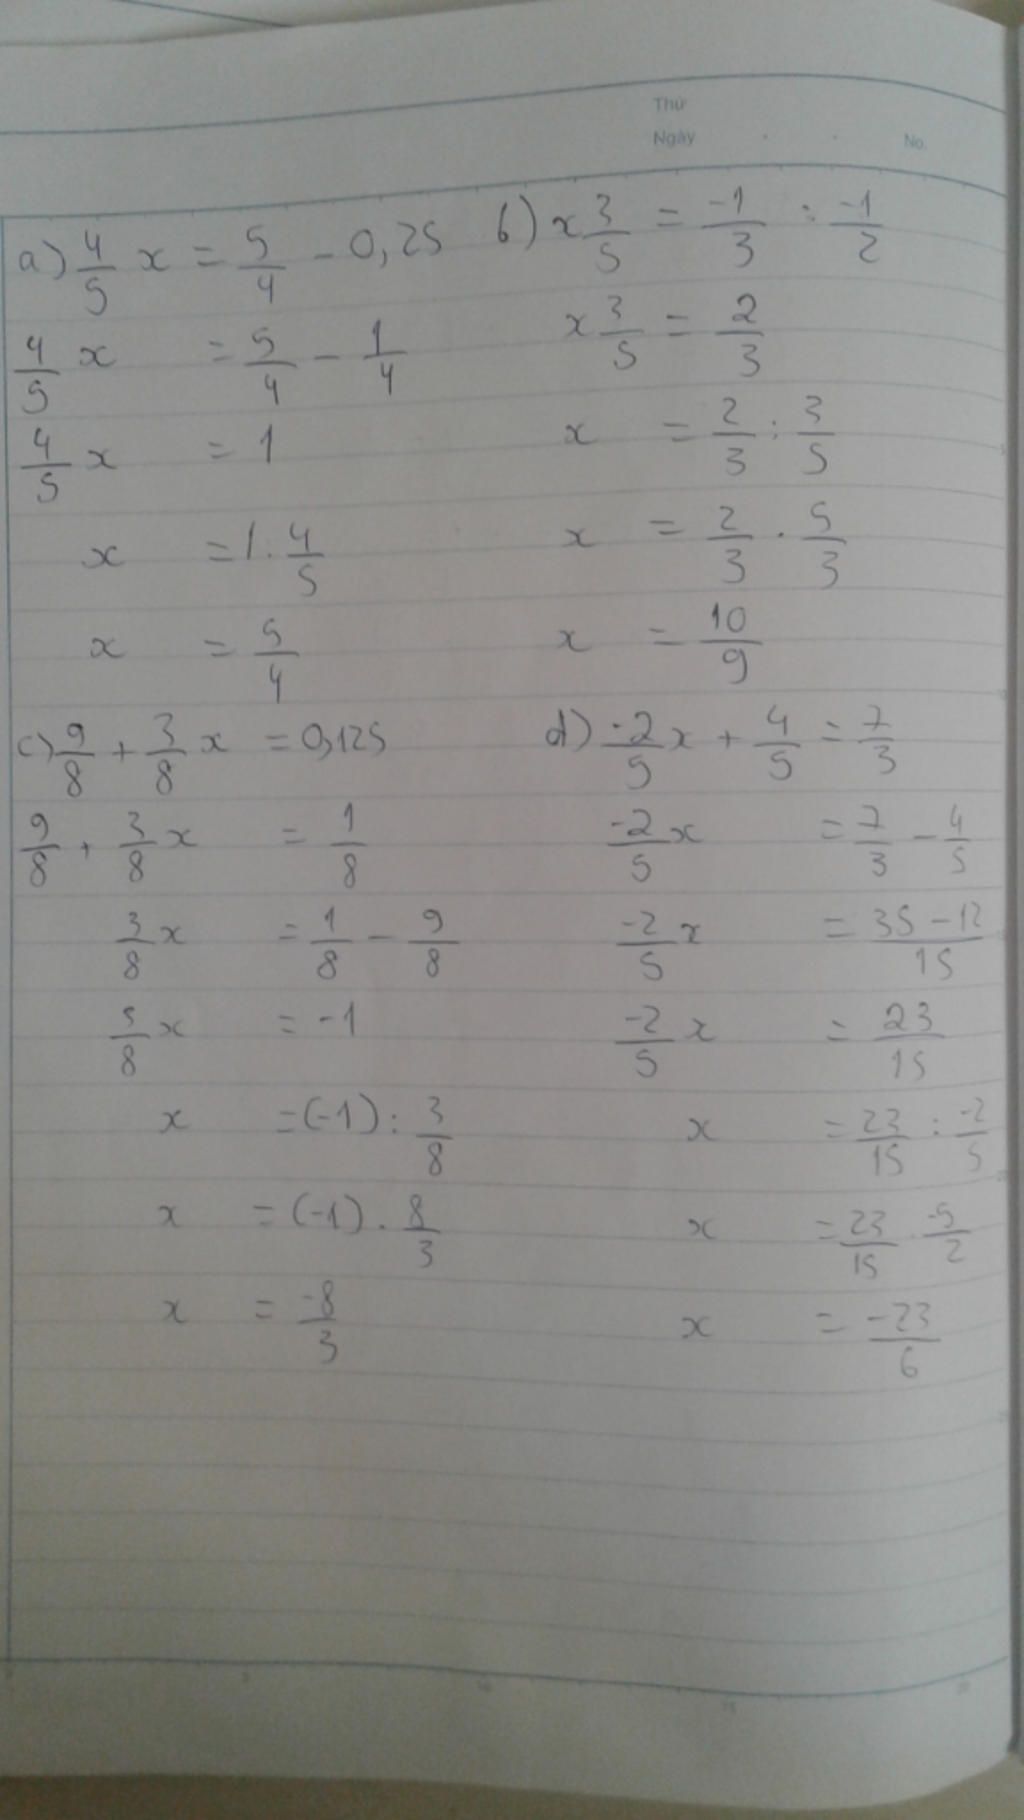 Thứ
Ngày . . No.
a) 4/5 x = 5/4 - 0,25
4/5 x = 5/4 - 1/4
4/5 x = 1
x = 1 . 4/5
x = 5/4
b) x 3/5 = -1/3 : -1/2
x 3/5 = 2/3
x = 2/3 : 3/5
x = 2/3 . 5/3
x = 10/9
c) 9/8 + 3/8 x = 0,125
9/8 + 3/8 x = 1/8
3/8 x = 1/8 - 9/8
5/8 x = -1
x = (-1) : 3/8
x = (-1) . 8/3
x = -8/3
d) -2/5 x + 4/5 = 7/3
-2/5 x = 7/3 - 4/5
-2/5 x = 35 - 12/15
-2/5 x = 23/15
x = 23/15 : -2/5
x = 23/15 . -5/2
x = -23/6